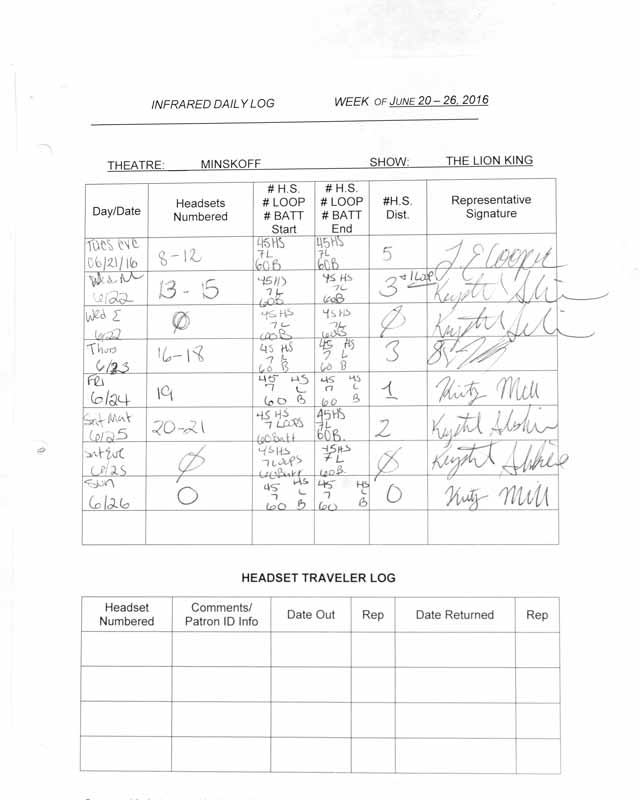 INFRARED DAILY LOG WEEK OF JUNE 20 – 26, 2016
THEATRE: MINSKOFF SHOW: THE LION KING
Day/Date Headsets Numbered # H.S. # LOOP # BATT Start # H.S. # LOOP # BATT End #H.S. Dist. Representative Signature
Tues eve 06/21/16 8-12 45HS 7L 60B 45HS 7L 60B 5
Wed M 6/22 13-15 45HS 7L 60B 45HS 7L 60B 3 + 1 Loop
Wed E 6/22 Ø 45HS 7L 60B 45HS 7L 60B Ø
Thurs 6/23 16-18 45 HS 7 L 60 B 45 HS 7 L 60 B 3
FRI 6/24 19 45 HS 7 L 60 B 45 HS 7 L 60 B 1
Sat Mat 6/25 20-21 45HS 7 Loops 60Batt 45HS 7L 60B. 2
Sat Eve 6/25 Ø 45HS 7 Loops 60Batt 45HS 7L 60B Ø
Sun 6/26 0 45 HS 7 L 60 B 45 HS 7 L 60 B 0
HEADSET TRAVELER LOG
Headset Numbered Comments/ Patron ID Info Date Out Rep Date Returned Rep